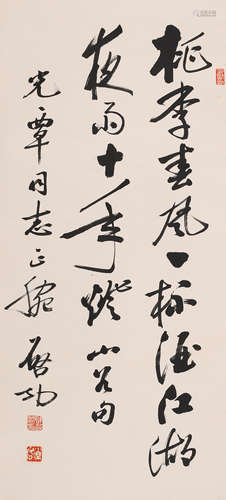 桃李春风一杯酒江湖
夜雨十年灯山谷句
光覃同志正腕
启功